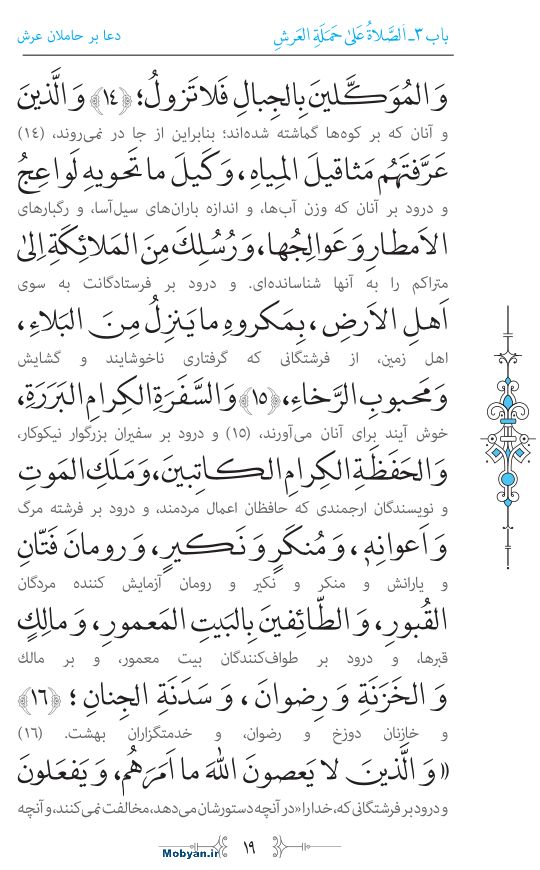 باب ۳ـ اَلصَّلاةُ عَلىٰ حَمَلَةِ العَرشِ
دعا بر حاملان عرش
وَ المُوَكَّلينَ بِالجِبالِ فَلا تَزولُ؛ ﴿۱۴﴾ وَ الَّذينَ
و آنان که بر کوه‌ها گماشته شده‌اند؛ بنابراین از جا در نمی‌روند، (۱۴)
عَرَّفتَهُم مَثاقيلَ المِياهِ، وَ كَيلَ ما تَحويهِ لَواعِجُ
و درود بر آنان که وزن آب‌ها، و اندازه باران‌های سیل‌آسا، و رگبارهای
الاَمطارِ وَ عَوالِجُها، وَ رُسُلِكَ مِنَ المَلائِكَةِ اِلىٰ
متراکم را به آنها شناسانده‌ای. و درود بر فرستادگانت به سوی
اَهلِ الاَرضِ، بِمَكروهِ ما يَنزِلُ مِنَ البَلاءِ،
اهل زمین، از فرشتگانی که گرفتاری ناخوشایند و گشایش
وَ مَحبوبِ الرَّخاءِ، ﴿۱۵﴾ وَ السَّفَرَةِ الكِرامِ البَرَرَةِ،
خوش آیند برای آنان می‌آورند، (۱۵) و درود بر سفیران بزرگوار نیکوکار،
وَ الحَفَظَةِ الكِرامِ الكاتِبينَ، وَ مَلَكِ المَوتِ
و نویسندگان ارجمندی که حافظان اعمال مردمند، و درود بر فرشته مرگ
وَ اَعوانِهِ، وَ مُنكَرٍ وَ نَكيرٍ، وَ رومانَ فَتّانِ
و یارانش و منکر و نکیر و رومان آزمایش کننده مردگان
القُبورِ، وَ الطّائِفينَ بِالبَيتِ المَعمورِ، وَ مالِكٍ
قبرها، و درود بر طواف‌کنندگان بیت معمور، و بر مالك
وَ الخَزَنَةِ وَ رِضوانَ، وَ سَدَنَةِ الجِنانِ؛ ﴿۱۶﴾
و خازنان دوزخ و رضوان، و خدمتگزاران بهشت. (۱۶)
«وَ الَّذينَ لا يَعصونَ اللّٰهَ ما اَمَرَهُم، وَ يَفعَلونَ
و درود بر فرشتگانی که، خدا را «در آنچه دستورشان می‌دهد، مخالفت نمی‌کنند، و آنچه
۱۹
Mobyan.ir